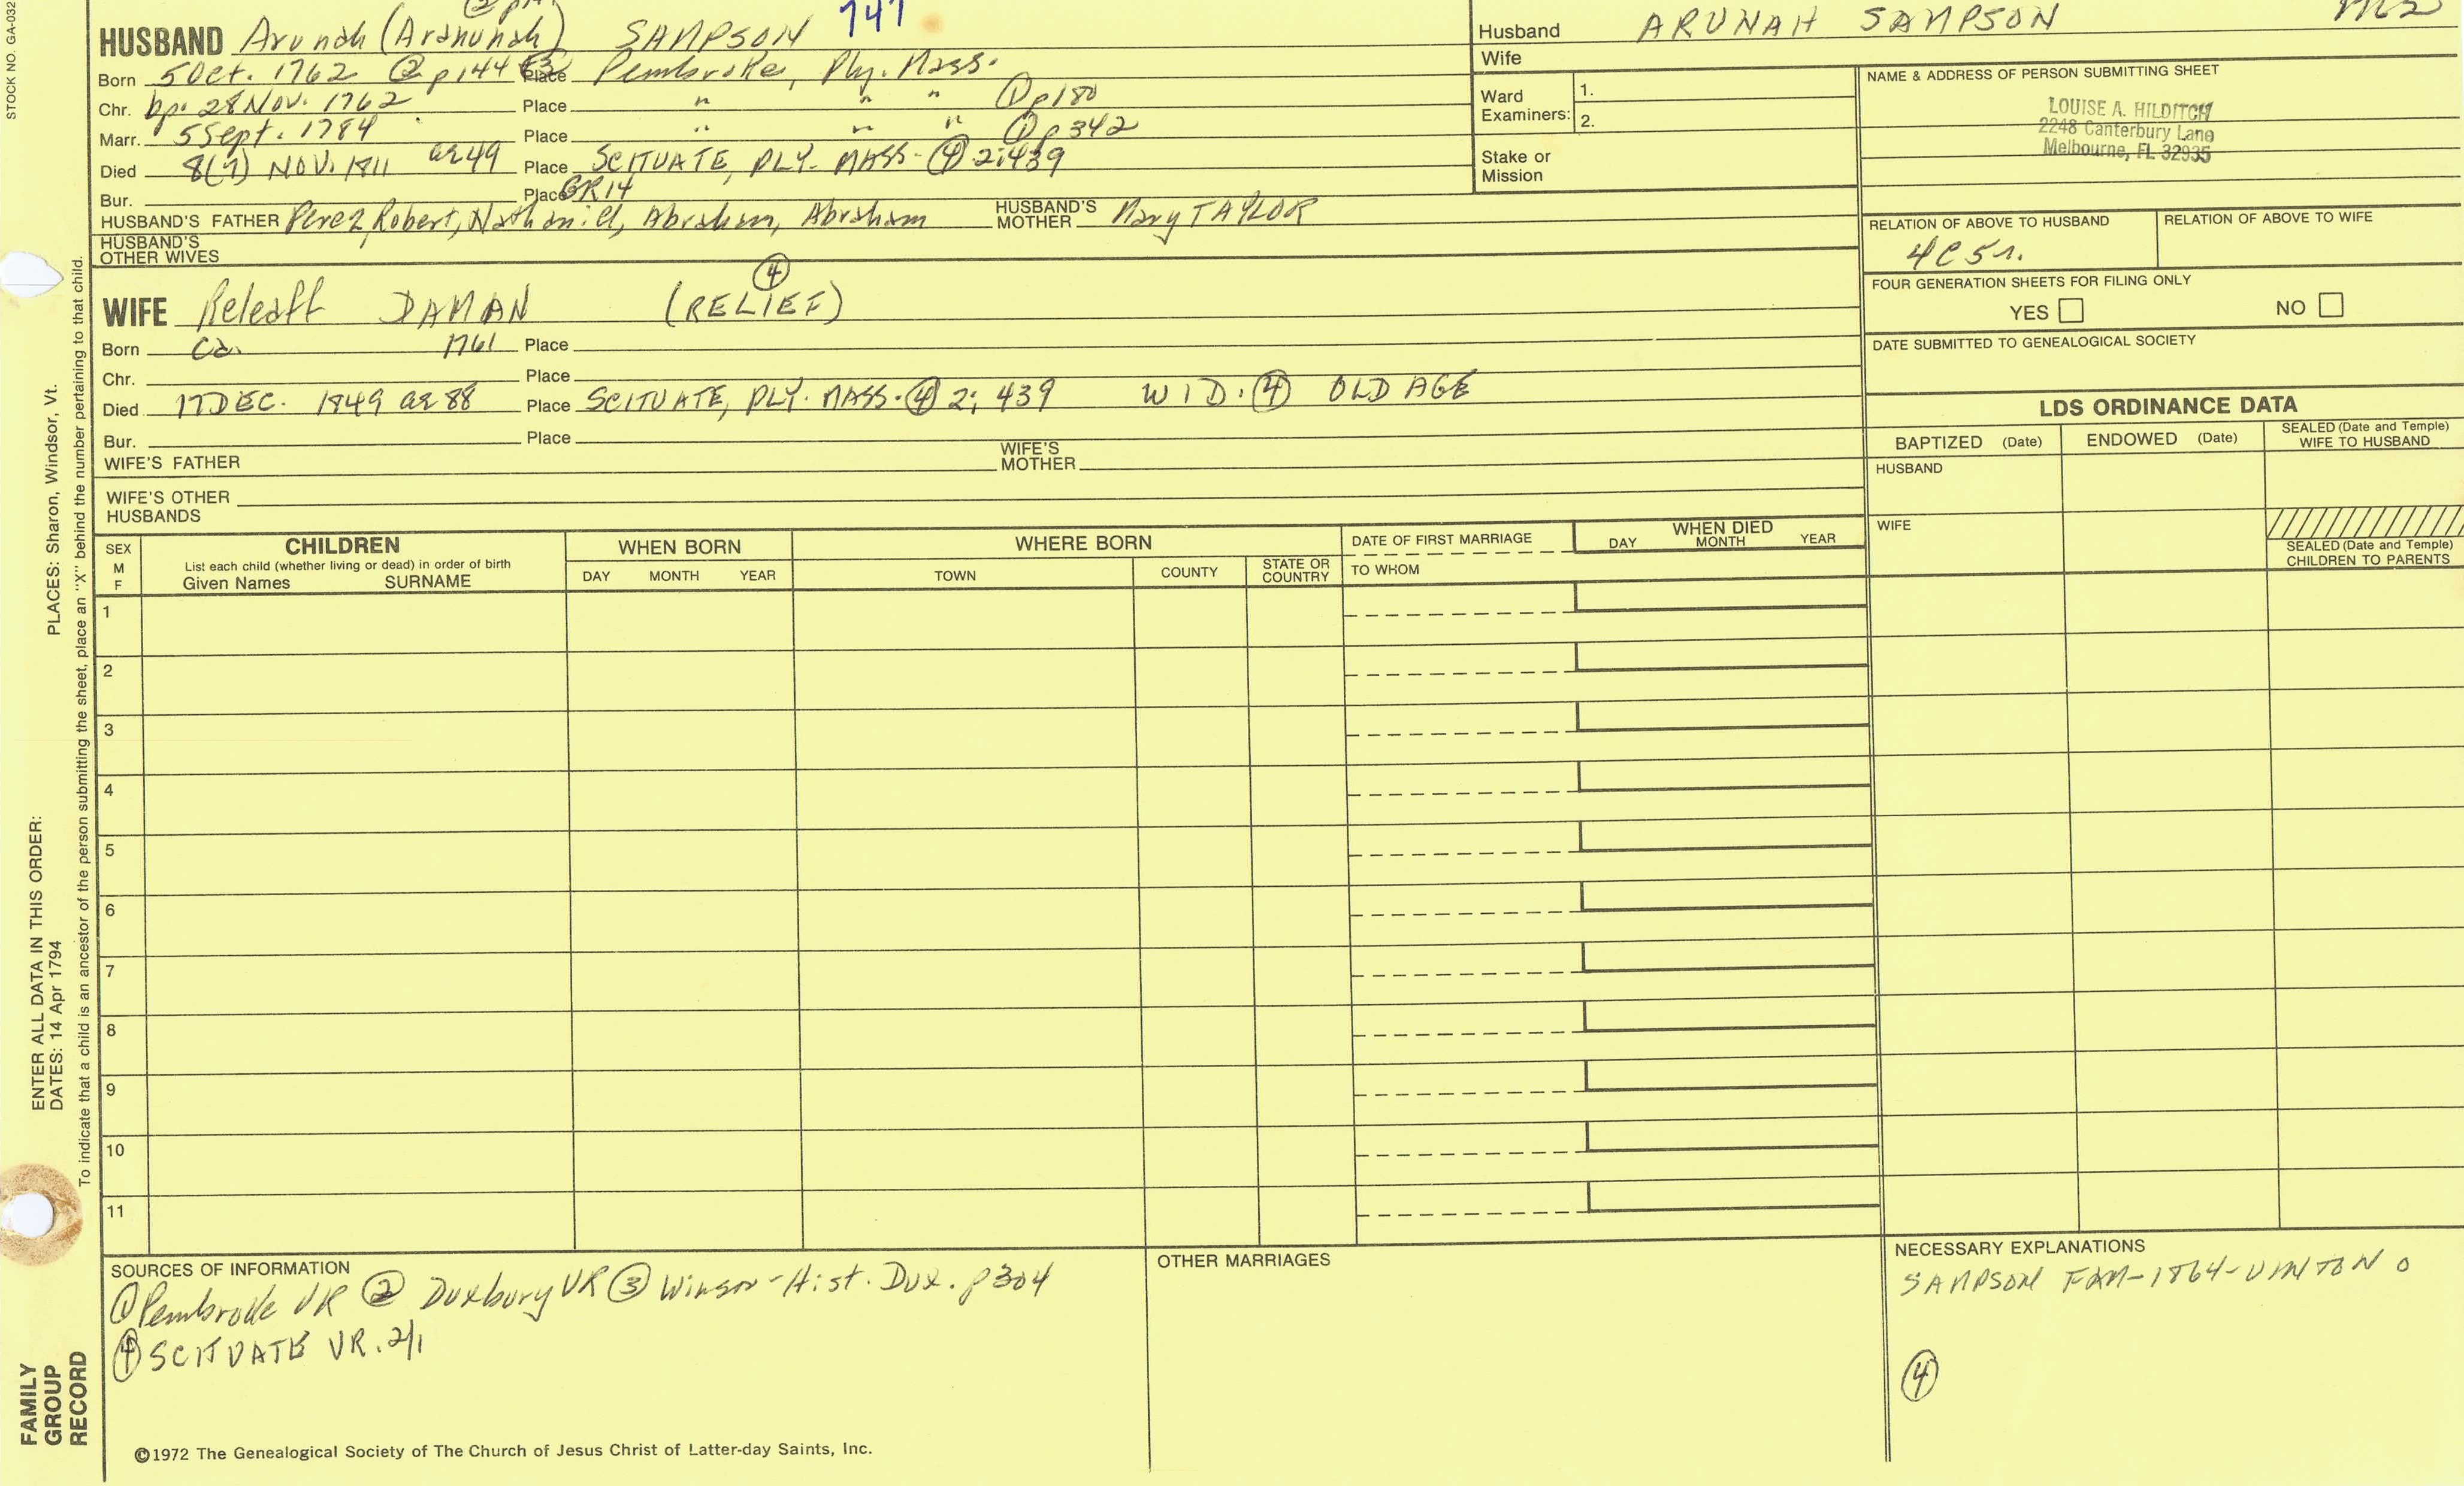 STOCK NO. GA-032
747
HUSBAND Arunah (Arahunah) SAMPSON
Born 5 Oct. 1762 ② p144 ③ Place Pembroke, Ply. Mass.
Chr. bp. 28 Nov. 1762 Place " " " ① p180
Marr. 5 Sept. 1784 Place " " " ① p342
Died 8(7) NOV. 1811 ae 49 Place SCITUATE, PLY. MASS. ④ 2:439
Bur. Place GR14
HUSBAND'S FATHER Perez, Robert, Nathaniel, Abraham, Abraham HUSBAND'S MOTHER Mary TAYLOR
HUSBAND'S OTHER WIVES
④
WIFE Releaff DAMAN (RELIEF)
Born Ca. 1761 Place
Chr. Place
Died 17 DEC. 1849 ae 88 Place SCITUATE, PLY. MASS. ④ 2: 439 WID. ④ OLD AGE
Bur. Place
WIFE'S FATHER WIFE'S MOTHER
WIFE'S OTHER HUSBANDS
Husband ARUNAH SAMPSON
Wife
Ward Examiners: 1.
2.
Stake or Mission
NAME & ADDRESS OF PERSON SUBMITTING SHEET
LOUISE A. HILDITCH
2248 Canterbury Lane
Melbourne, FL 32935
RELATION OF ABOVE TO HUSBAND RELATION OF ABOVE TO WIFE
4C5r.
FOUR GENERATION SHEETS FOR FILING ONLY
YES NO
DATE SUBMITTED TO GENEALOGICAL SOCIETY
LDS ORDINANCE DATA
BAPTIZED (Date) ENDOWED (Date) SEALED (Date and Temple) WIFE TO HUSBAND
HUSBAND
WIFE
SEALED (Date and Temple) CHILDREN TO PARENTS
SEX M F
CHILDREN
List each child (whether living or dead) in order of birth
Given Names SURNAME
WHEN BORN
DAY MONTH YEAR
WHERE BORN
TOWN COUNTY STATE OR COUNTRY
DATE OF FIRST MARRIAGE
TO WHOM
WHEN DIED
DAY MONTH YEAR
1
2
3
4
5
6
7
8
9
10
11
SOURCES OF INFORMATION
① Pembroke VR ② Duxbury VR ③ Winsor-Hist. Dux. p304
④ SCITUATE VR. 2/1
OTHER MARRIAGES
NECESSARY EXPLANATIONS
SAMPSON FAM-1864-VINTON
④
©1972 The Genealogical Society of The Church of Jesus Christ of Latter-day Saints, Inc.
FAMILY GROUP RECORD
ENTER ALL DATA IN THIS ORDER:
DATES: 14 Apr 1794 PLACES: Sharon, Windsor, Vt.
To indicate that a child is an ancestor of the person submitting the sheet, place an "X" behind the number pertaining to that child.